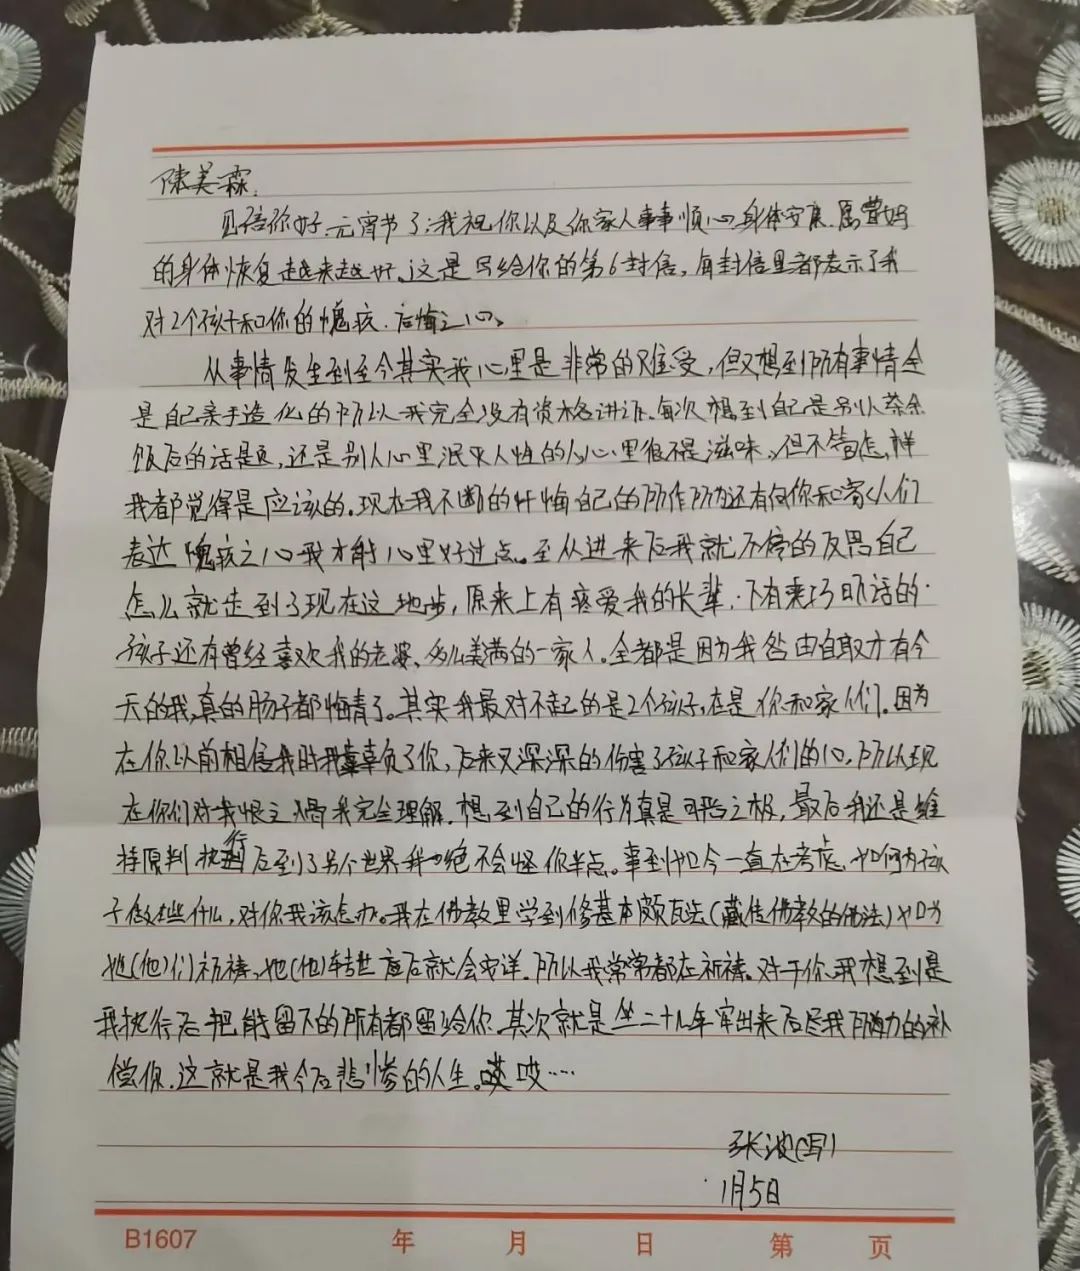 陈美霖:
见信你好.元宵节了,我祝你以及你家人事事顺心.身体安康.愿曹妈
的身体恢复越来越好。这是写给你的第6封信,每封信里都表示了我
对2个孩子和你的愧疚.后悔之心。
从事情发生到至今其实我心里是非常的难受,但又想到所有事情全
是自己亲手造化的所以我完全没有资格讲诉.每次想到自己是别人茶余
饭后的话题,还是别人心里泯灭人性的人心里很不是滋味。但不管怎样
我都觉得是应该的.现在我不断的忏悔自己的所作所为还有向你和家人们
表达愧疚之心我才能心里好过点。至从进来后我就不停的反思自己
怎么就走到了现在这地步,原来上有疼爱我的长辈.下有乘巧听话的
孩子还有曾经喜欢我的老婆、多么美满的一家人。全都是因为我咎由自取才有今
天的我,真的肠子都悔青了。其实我最对不起的是2个孩子,在是你和家人们.因为
在你以前相信我时我辜负了你,后来又深深的伤害了孩子和家人们的心.所以现
在你们对我恨之入骨我完全理解.想到自己的行为真是可恶之极,最后我还是维
持原判执行后到了另个世界我也绝不会怪你半点。事到如今一直在考虑.如何为孩
子做些什么,对你我该怎办。我在佛教里学到修基本颇瓦法(藏传佛教的佛法)如为
她(他)们祈祷.她(他)转世度后就会安详.所以我常常都在祈祷.对于你.我想到是
我执行后把能留下的所有都留给你.其次就是坐二十几年牢出来后尽我所能力的补
偿你.这就是我今后悲惨的人生。哎哎……
张波(写)
1月5日
B1607 年 月 日 第 页